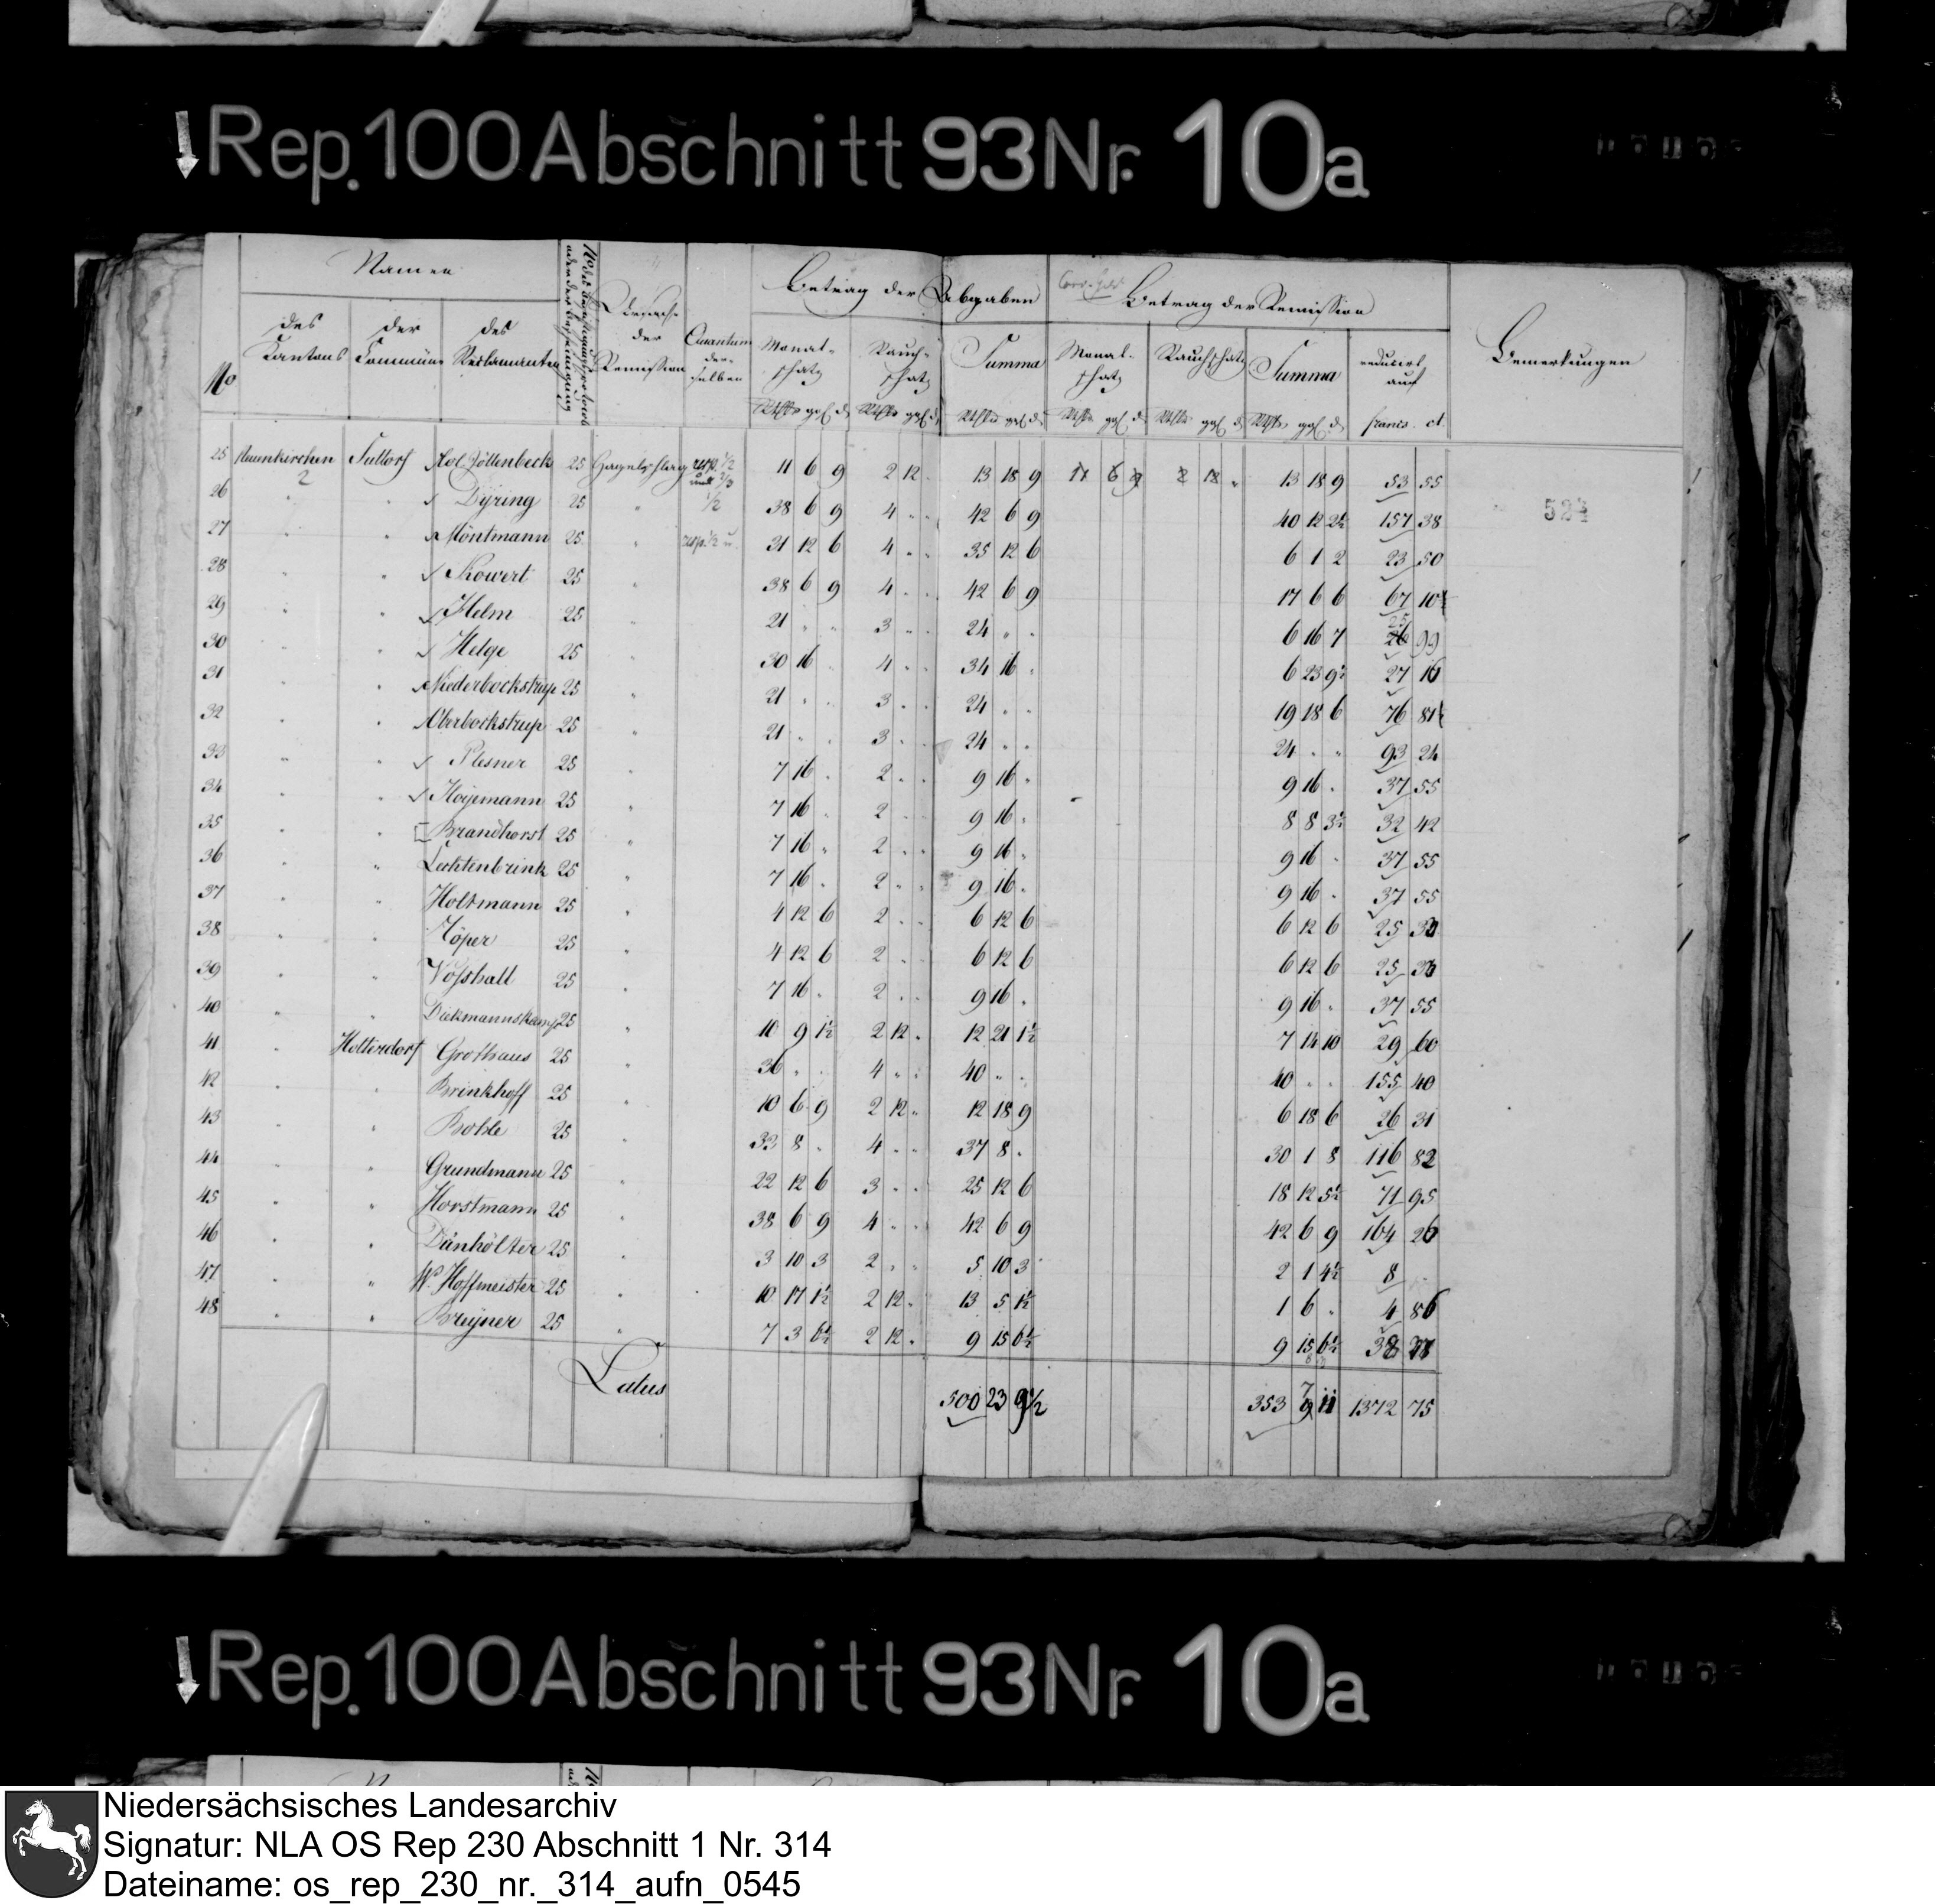 Rep. 100 Abschnitt 93 Nr. 10a
Namen Betrag der Abgaben Betrag der Remission
No des Kantons der Commüne des Reclamanten Ursache der Remission Quantum derselben Monatschatz Rauchschatz Summa Monatschatz Rauchschatz Summa reducirt auf Bemerkungen
Rthlr ggl d Rthlr ggl d Rthlr ggl d Rthlr ggl d Rthlr ggl d Rthlr ggl d francs ct.
25 Neuenkirchen 2 Suttorf Kol. Göttenbeck 25 Hagelschlag 11 6 9 2 12 13 18 9 11 6 9 2 12 " 13 18 9 53 55
26 " " Dyring 25 " 1/2 38 6 9 4 " " 42 6 9 40 12 2½ 157 38
27 " " Möntmann 25 " resp. ½ u. 31 12 6 4 " " 35 12 6 6 1 2 23 50
28 " " Kowert 25 " 38 6 9 4 " " 42 6 9 17 6 6 67 10
29 " " Helm 25 " 21 " " 3 " " 24 " " 6 16 7 25 99
30 " " Helge 25 " 30 16 " 4 " " 34 16 " 6 23 9½ 27 16
31 " " Niederbockstrup 25 " 21 " " 3 " " 24 " " 19 18 6 76 81
32 " " Oberbockstrup 25 " 21 " " 3 " " 24 " " 24 " " 93 24
33 " " Plesner 25 " 7 16 " 2 " " 9 16 " 9 16 " 37 55
34 " " Hoyemann 25 " 7 16 " 2 " " 9 16 " 8 8 3½ 32 42
35 " " Brandhorst 25 " 7 16 " 2 " " 9 16 " 9 16 " 37 55
36 " " Lechtenbrink 25 " 7 16 " 2 " " 9 16 " 9 16 " 37 55
37 " " Holtmann 25 " 4 12 6 2 " " 6 12 6 6 12 6 25 30
38 " " Höper 25 " 4 12 6 2 " " 6 12 6 6 12 6 25 30
39 " " Voßhall 25 " 7 16 " 2 " " 9 16 " 9 16 " 37 55
40 " " Diekmannskamp 25 " 10 9 1½ 2 12 " 12 21 1½ 7 14 10 29 60
41 " Holterdorf Grothaus 25 " 36 " " 4 " " 40 " " 40 " " 155 40
42 " " Brinkhoff 25 " 10 6 9 2 12 " 12 18 9 6 18 6 26 31
43 " " Bohle 25 " 33 8 " 4 " " 37 8 " 30 1 8 116 82
44 " " Grundmann 25 " 22 12 6 3 " " 25 12 6 18 12 5½ 71 95
45 " " Horstmann 25 " 38 6 9 4 " " 42 6 9 42 6 9 164 26
46 " " Dänhölter 25 " 3 10 3 2 " " 5 10 3 2 1 4½ 8 "
47 " " W. Hoffmeister 25 " 10 17 1½ 2 12 " 13 5 1½ 1 6 " 4 86
48 " " Breyner 25 " 7 3 6½ 2 12 " 9 15 6½ 9 15 6½ 38
Latus 500 23 9½ 353 7 11 1372 75
Rep. 100 Abschnitt 93 Nr. 10a
Niedersächsisches Landesarchiv
Signatur: NLA OS Rep 230 Abschnitt 1 Nr. 314
Dateiname: os_rep_230_nr._314_aufn_0545